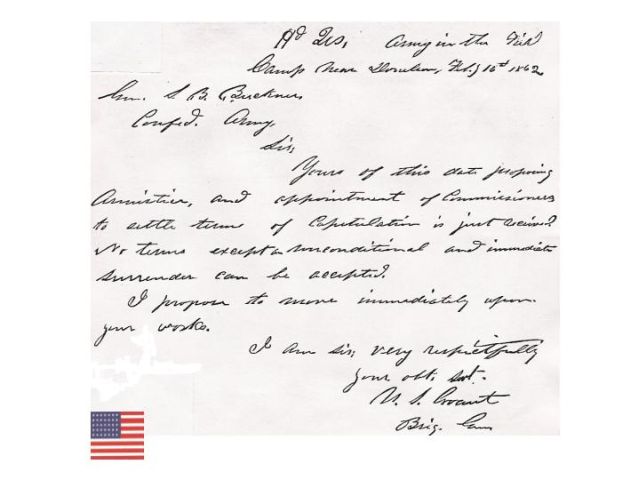 Hd Qrs, Army in the Field
Camp Near Donelson, Feby 16th 1862
Gen. S. B. Buckner,
Confed. Army,
Sir;
Yours of this date proposing
Armistice, and appointment of Commissioners
to settle terms of Capitulation is just received.
No terms except an unconditional and immediate
surrender can be accepted.
I propose to move immediately upon
your works.
I am sir; very respectfully
your obt. svt.
U. S. Grant
Brig. Gen